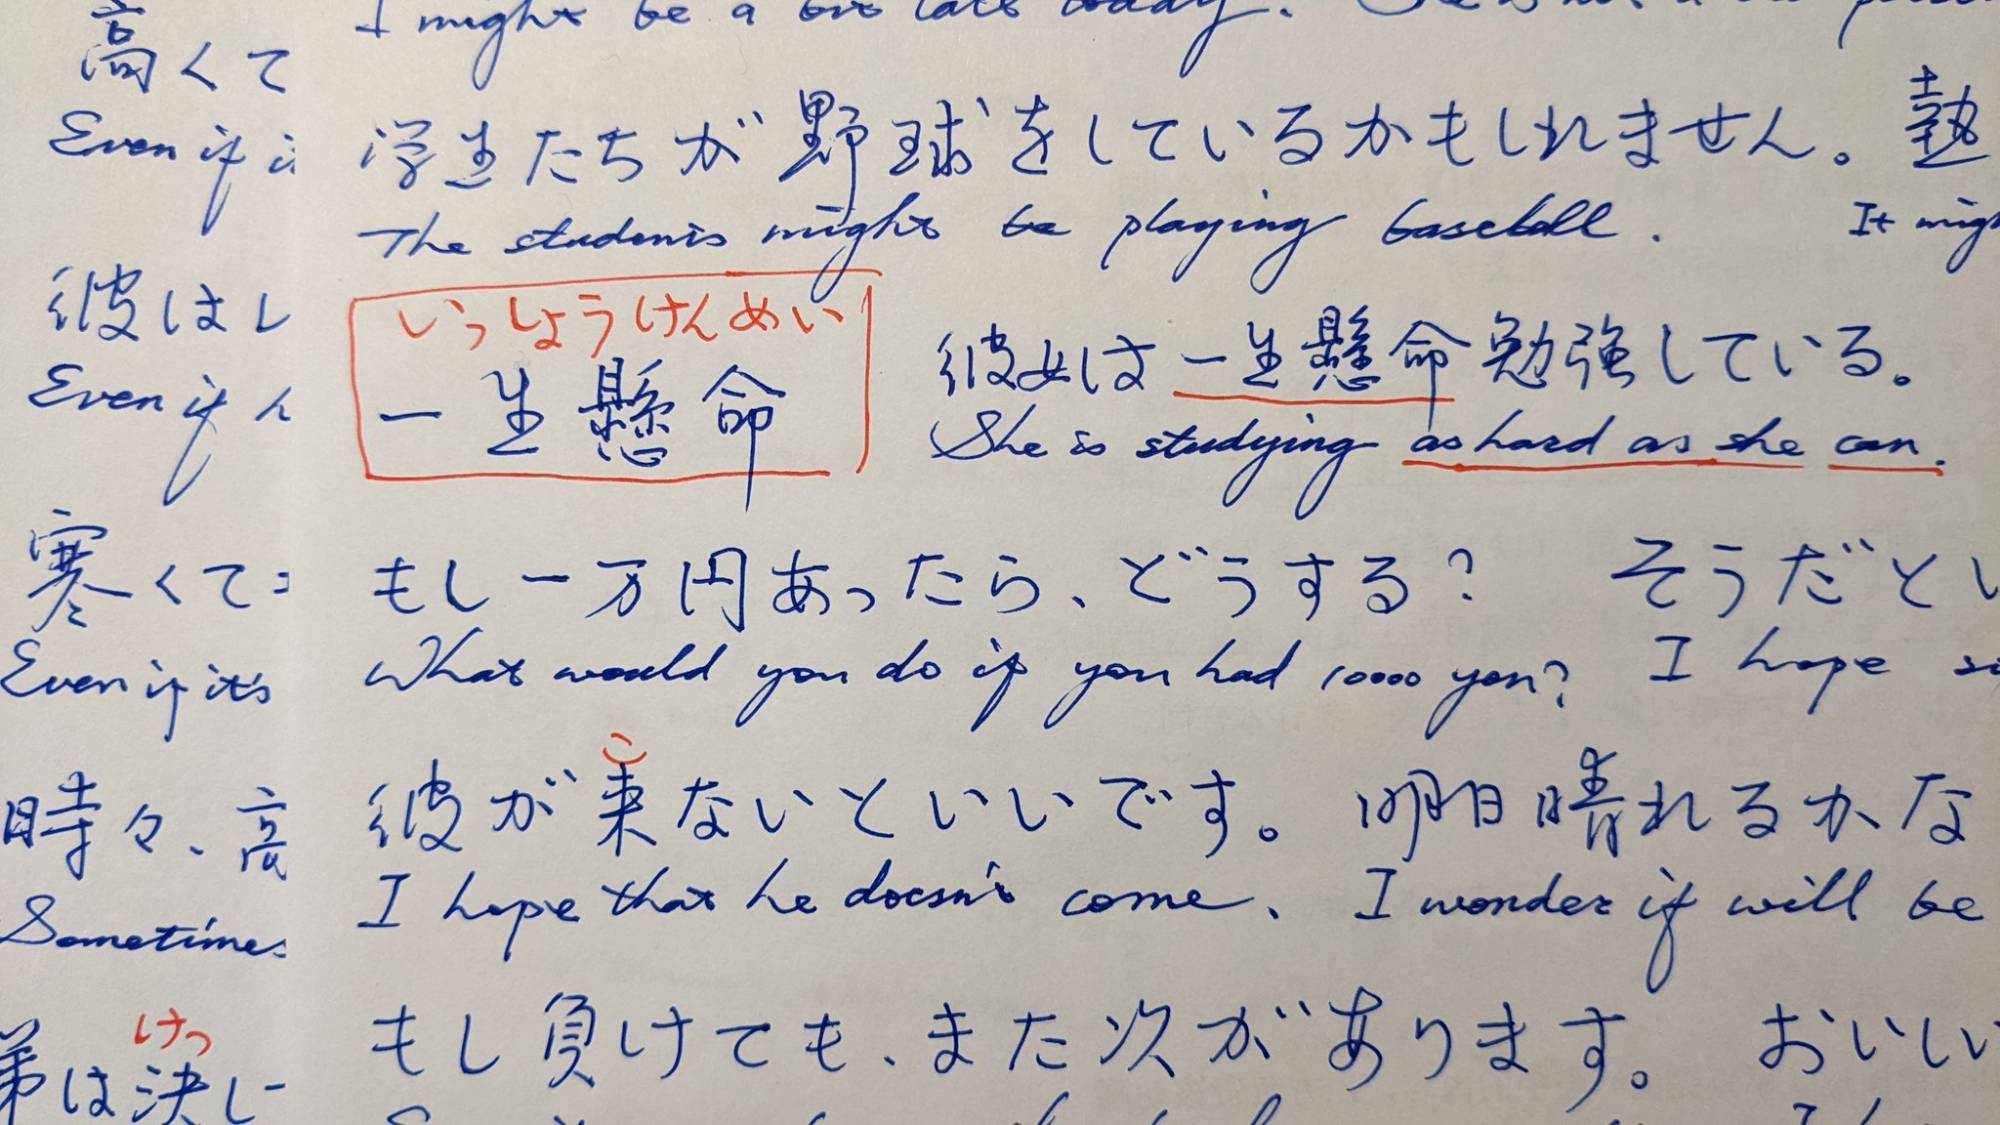 高くて
Even if i
彼はし
Even if h
寒くて
Even if it's
時々、高
Sometimes
けっ
弟は決し
I might be a bit late today.
学生たちが野球をしているかもしれません。 熱
The students might be playing baseball. It migh
いっしょうけんめい
一生懸命 彼女は一生懸命勉強している。
She is studying as hard as she can.
もし一万円あったら、どうする? そうだとい
What would you do if you had 10000 yen? I hope so
こ
彼が来ないといいです。 明日晴れるかな
I hope that he doesn't come. I wonder if will be
もし負けても、また次があります。 おいしい